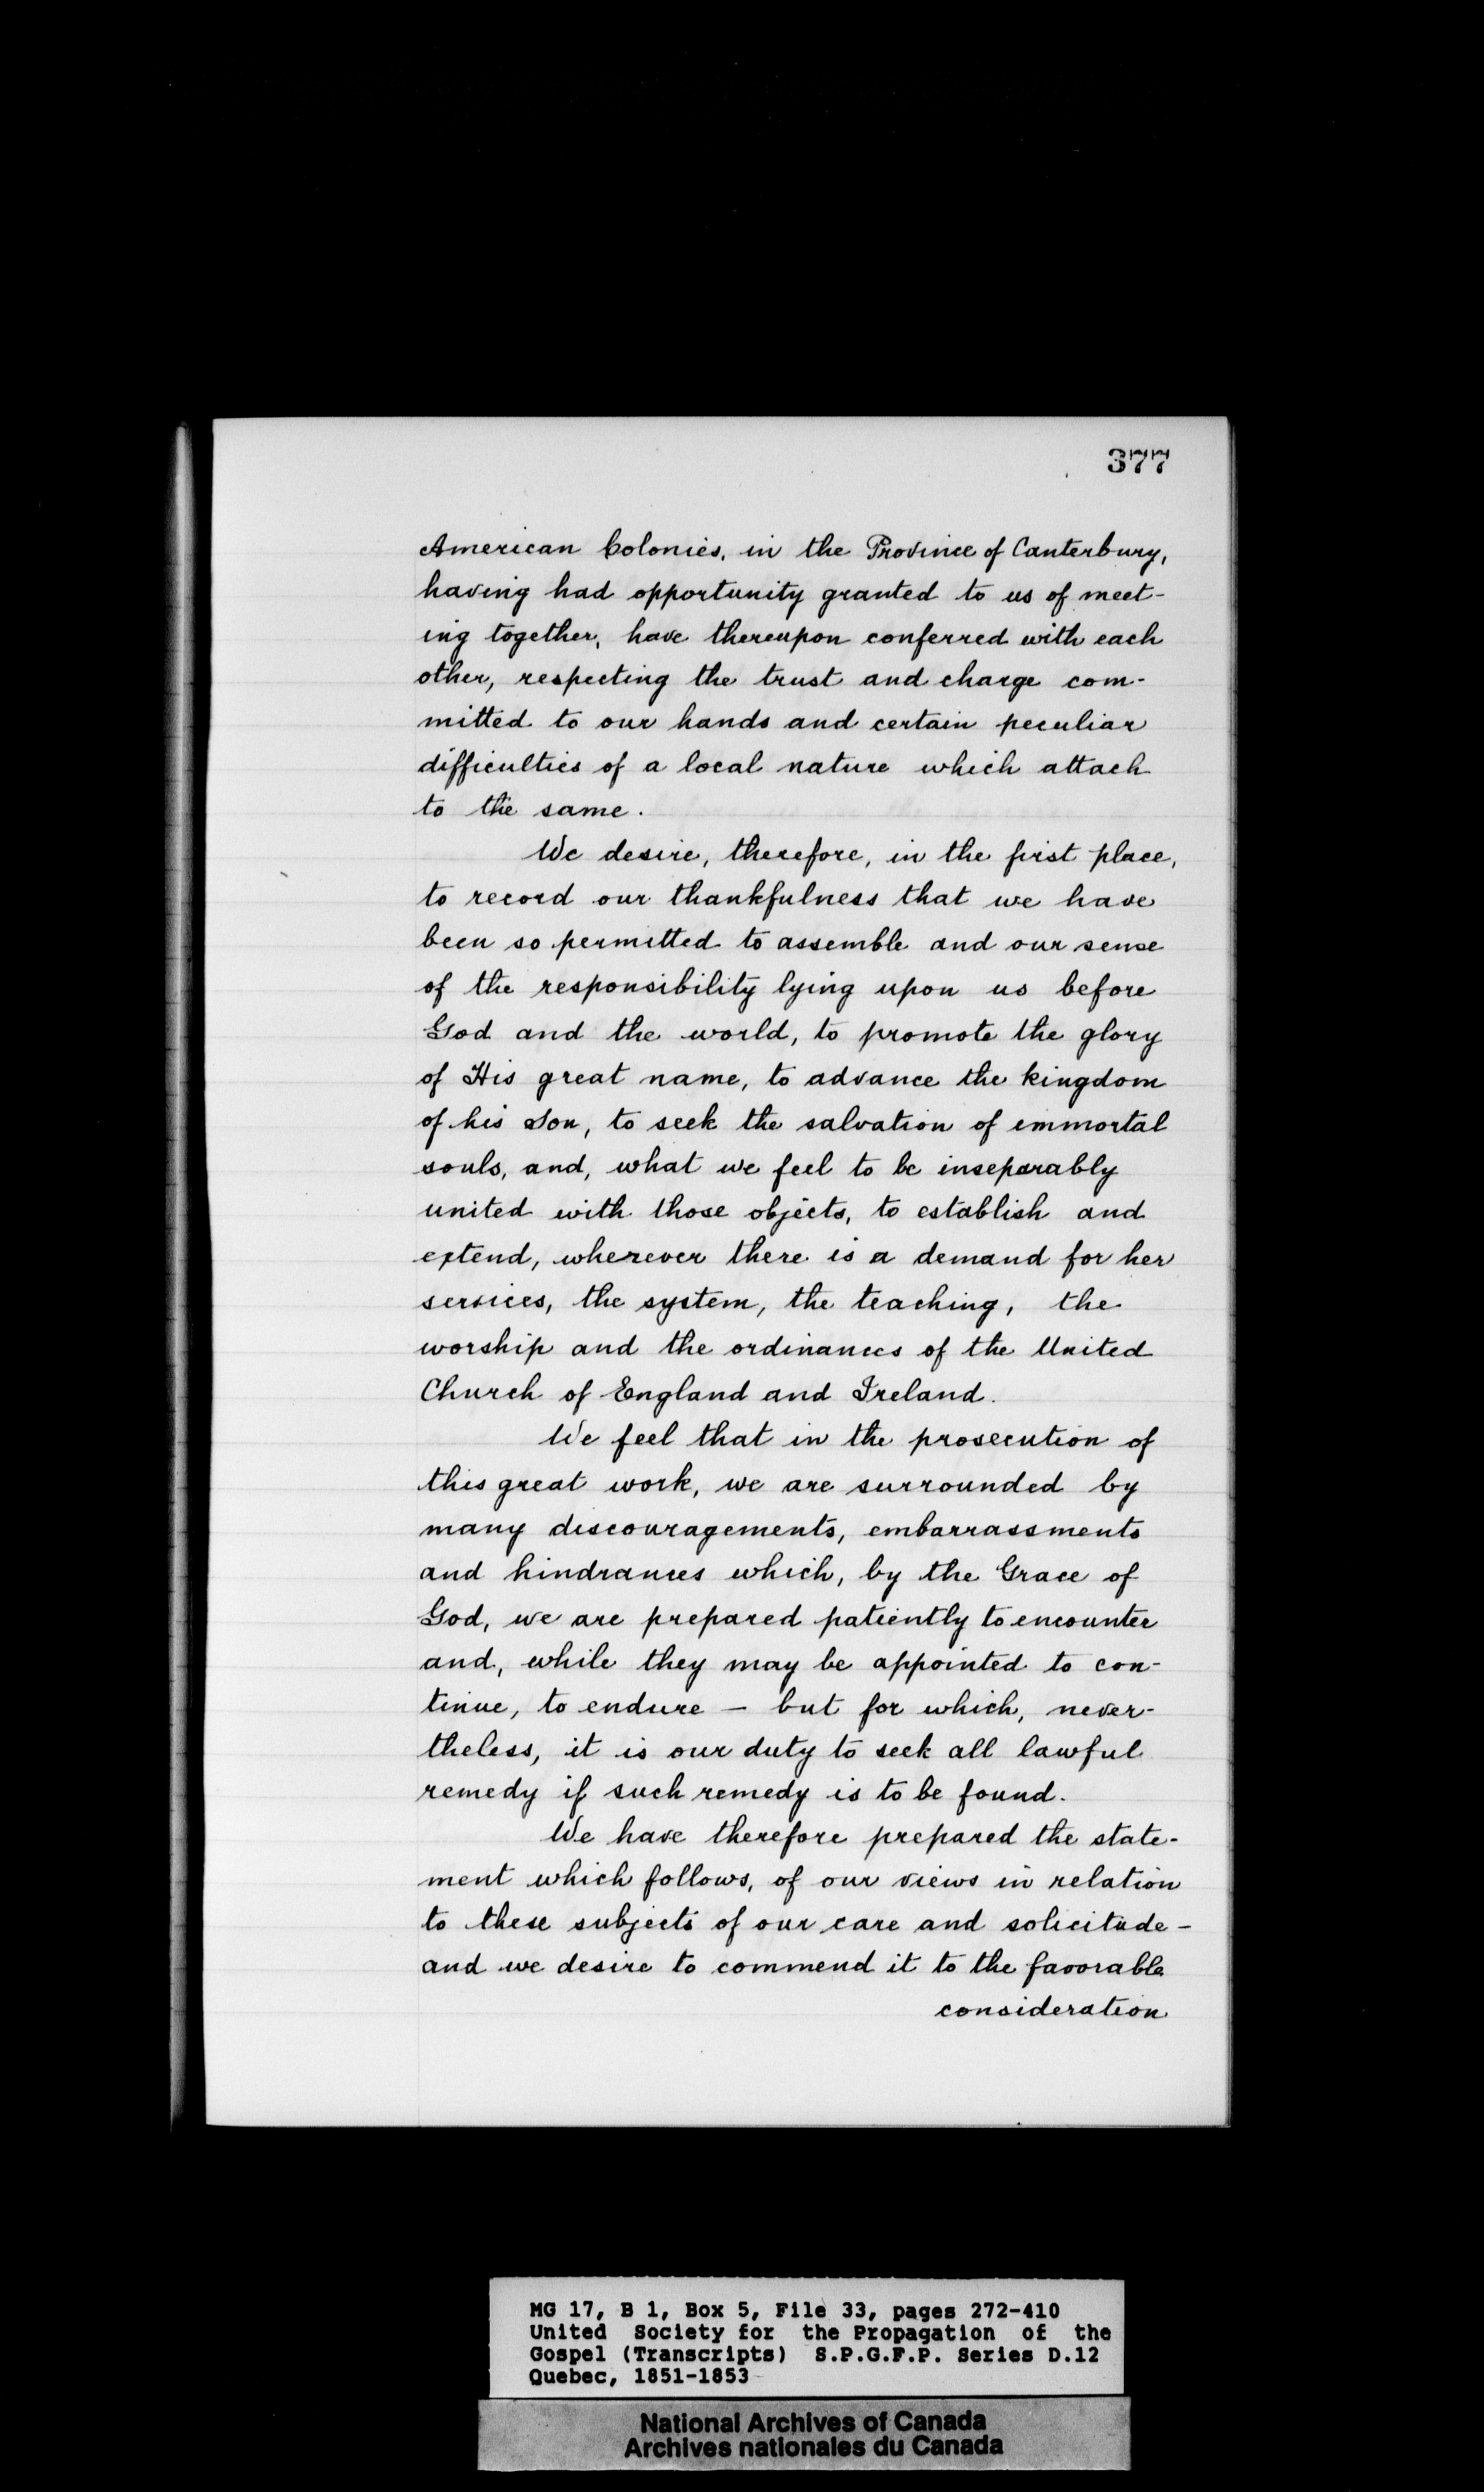 377
American Colonies, in the Province of Canterbury,
having had opportunity granted to us of meet-
ing together, have thereupon conferred with each
other, respecting the trust and charge com-
mitted to our hands and certain peculiar
difficulties of a local nature which attach
to the same.
We desire, therefore, in the first place,
to record our thankfulness that we have
been so permitted to assemble and our sense
of the responsibility lying upon us before
God and the world, to promote the glory
of His great name, to advance the kingdom
of his Son, to seek the salvation of immortal
souls, and, what we feel to be inseparably
united with those objects, to establish and
extend, wherever there is a demand for her
services, the system, the teaching, the
worship and the ordinances of the United
Church of England and Ireland.
We feel that in the prosecution of
this great work, we are surrounded by
many discouragements, embarrassments
and hindrances which, by the Grace of
God, we are prepared patiently to encounter
and, while they may be appointed to con-
tinue, to endure — but for which, never-
theless, it is our duty to seek all lawful
remedy if such remedy is to be found.
We have therefore prepared the state-
ment which follows, of our views in relation
to these subjects of our care and solicitude -
and we desire to commend it to the favorable
consideration
MG 17, B 1, Box 5, File 33, pages 272-410
United Society for the Propagation of the
Gospel (Transcripts) S.P.G.F.P. Series D.12
Quebec, 1851-1853
National Archives of Canada
Archives nationales du Canada